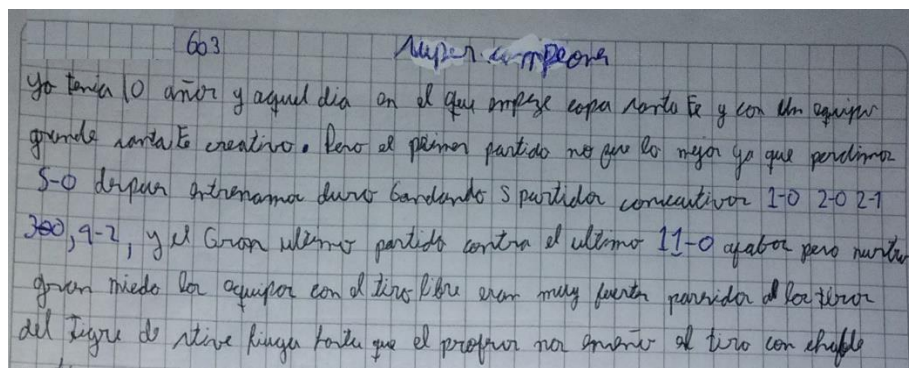 603 super campeones
yo tenia 10 años y aquel dia en el que empeze copa santa Fe y con un equipo
grande santa Fe creativo. Pero el primer partido no fue lo mejor ya que perdimos
5-0 despues entrenamos duro Gandando 5 partidos consecutivos 1-0 2-0 2-1
, 4-2, y el Gran ultimo partido contra el ultimo 11-0 afabor pero nuestro
gran miedo los equipos con el tiro libre eran muy fuertes paresidos a los tiros
del Tigre de stive hasta que el profesor nos enseño el tiro con chafle